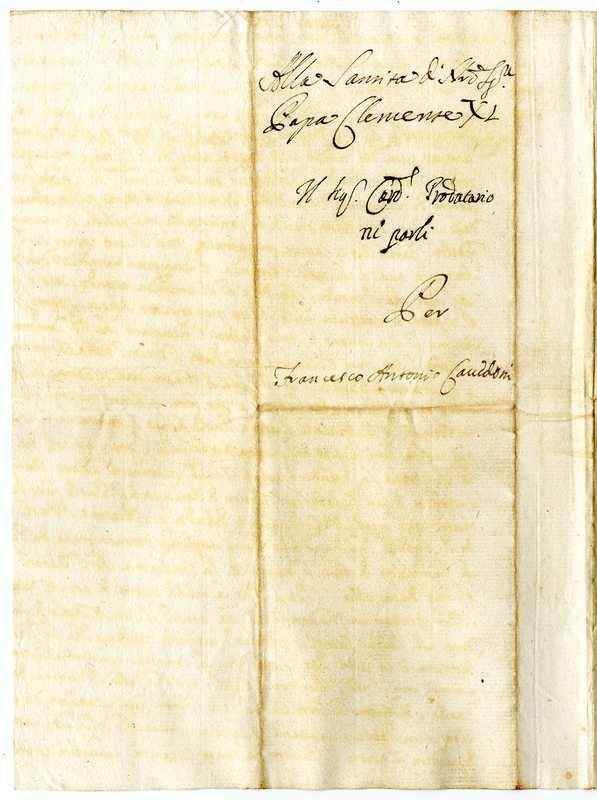 Alla Santita di Nro Sigre
Papa Clemente XI
Il Sigr Cardl Prodatario
ni parli
Per
Francesco Antonio Cavedoni